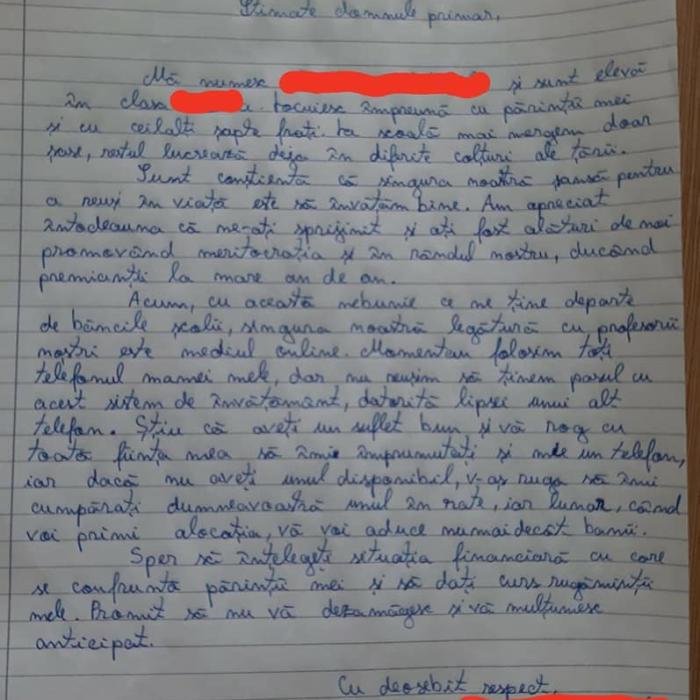 Stimate domnule primar,
Mă numesc și sunt elevă
în clasa a. Locuiesc împreună cu părinții mei
și cu ceilalți șapte frați. La școală mai mergem doar
șase, restul lucrează deja în diferite colțuri ale țării.
Sunt conștientă că singura noastră șansă pentru
a reuși în viață este să învățăm bine. Am apreciat
întodeauna că ne-ați sprijinit și ați fost alături de noi
promovând meritocrația și în rândul nostru, ducând
premianții la mare an de an.
Acum, cu această nebunie ce ne ține departe
de băncile școlii, singura noastră legătură cu profesorii
noștri este mediul online. Momentan folosim toți
telefonul mamei mele, dar nu reușim să ținem pasul cu
acest sistem de învățământ, datorită lipsei unui alt
telefon. Știu că aveți un suflet bun și vă rog cu
toată ființa mea să îmi împrumutați și mie un telefon,
iar dacă nu aveți unul disponibil, v-aș ruga să îmi
cumpărați dumneavoastră unul în rate, iar lunar, când
voi primi alocația, vă voi aduce numaidecât banii.
Sper să înțelegeți situația financiară cu care
se confruntă părinții mei și să dați curs rugăminții
mele. Promit să nu vă dezamăgesc și vă mulțumesc
anticipat.
Cu deosebit respect,